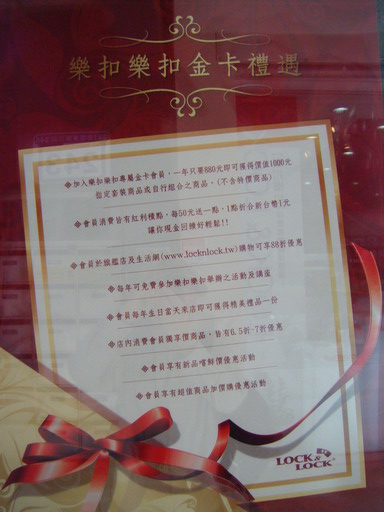 樂扣樂扣金卡禮遇
◆加入樂扣樂扣專屬金卡會員，一年只要880元即可獲得價值1000元
指定套裝商品或自行組合之商品。(不含特價商品)
◆會員消費皆有紅利積點，每50元送一點，1點折合新台幣1元
讓你現金回饋好輕鬆!!
◆會員於旗艦店及生活網(www.locknlock.tw)購物可享88折優惠
◆每年可免費參加樂扣樂扣舉辦之活動及講座
◆會員每年生日當天來店即可獲得精美禮品一份
◆店內消費會員獨享價商品，皆有6.5折-7折優惠
◆會員享有新品嚐鮮價優惠活動
◆會員享有超值商品加價購優惠活動
LOCK &
LOCK